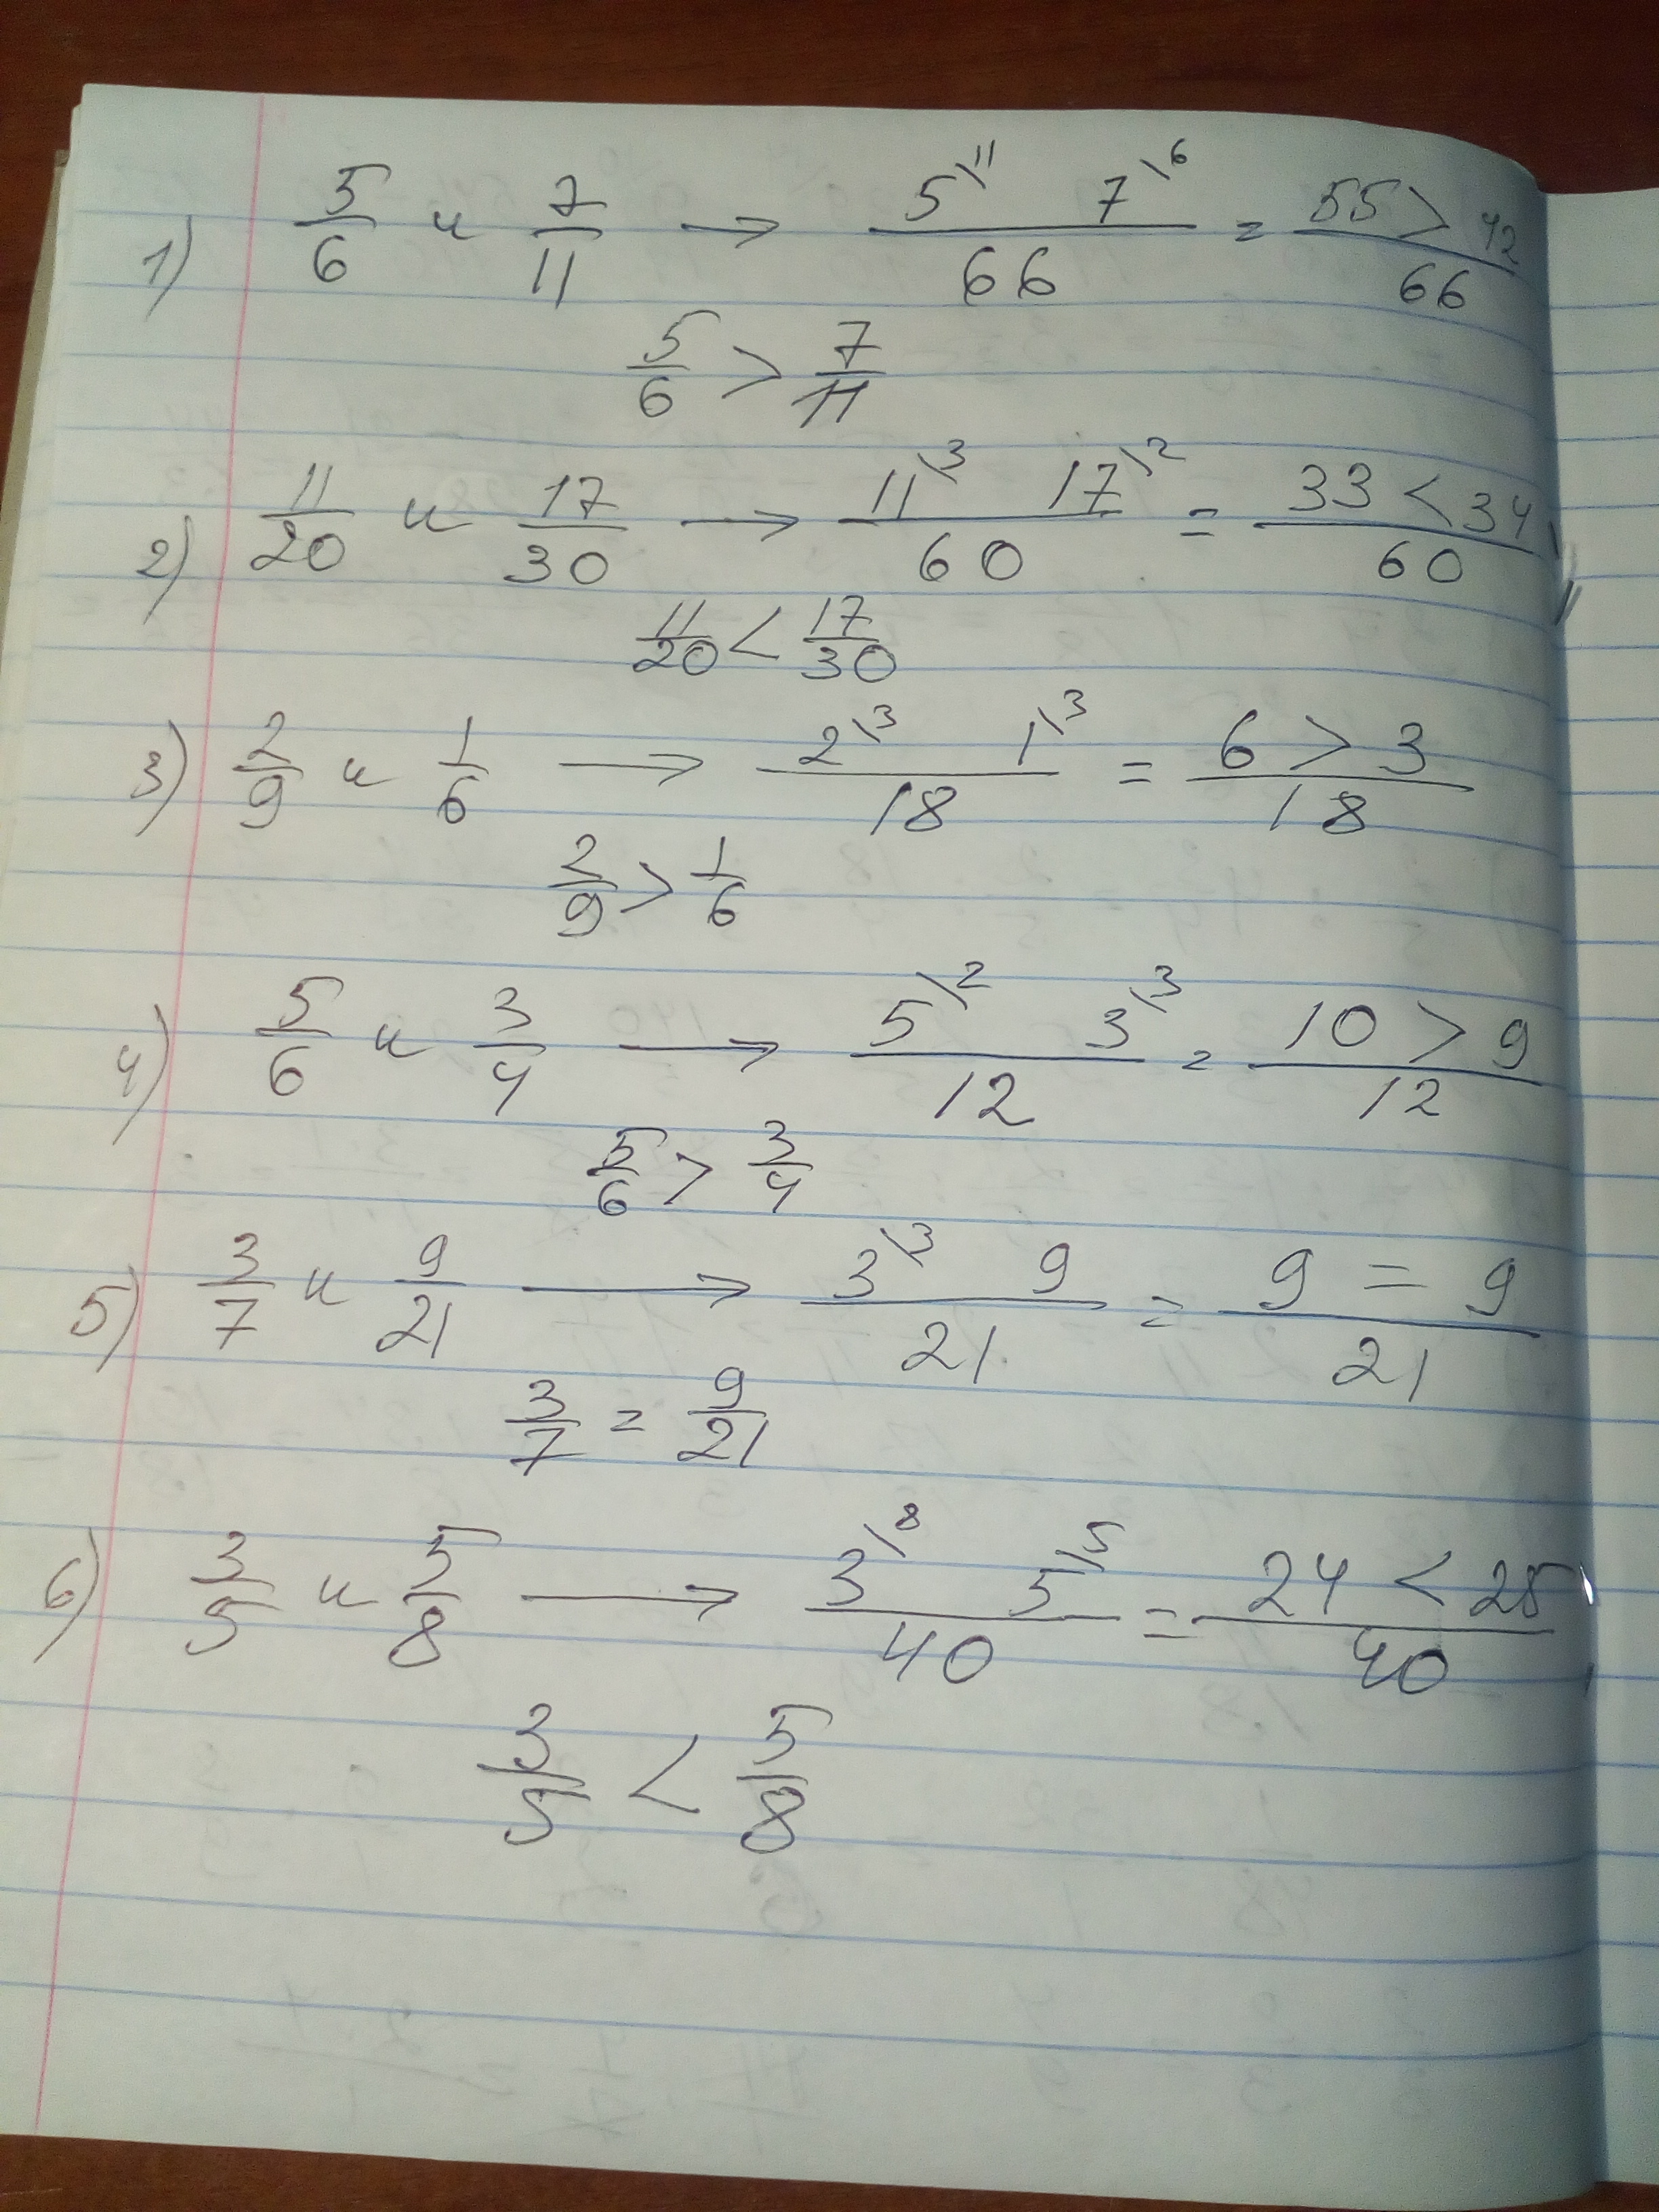 1) 5/6 и 7/11 → 5\11 7\6 / 66 = 55 > 42 / 66
5/6 > 7/11
2) 11/20 и 17/30 → 11\3 17\2 / 60 = 33 < 34 / 60
11/20 < 17/30
3) 2/9 и 1/6 → 2\3 1\3 / 18 = 6 > 3 / 18
2/9 > 1/6
4) 5/6 и 3/4 → 5\2 3\3 / 12 = 10 > 9 / 12
5/6 > 3/4
5) 3/7 и 9/21 → 3\3 9 / 21 = 9 = 9 / 21
3/7 = 9/21
6) 3/5 и 5/8 → 3\8 5\5 / 40 = 24 < 25 / 40
3/5 < 5/8